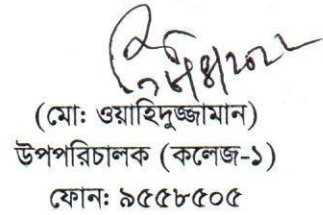 (মো: ওয়াহিদুজ্জামান)
উপপরিচালক (কলেজ-১)
ফোন: ৯৫৫৮৫০৫